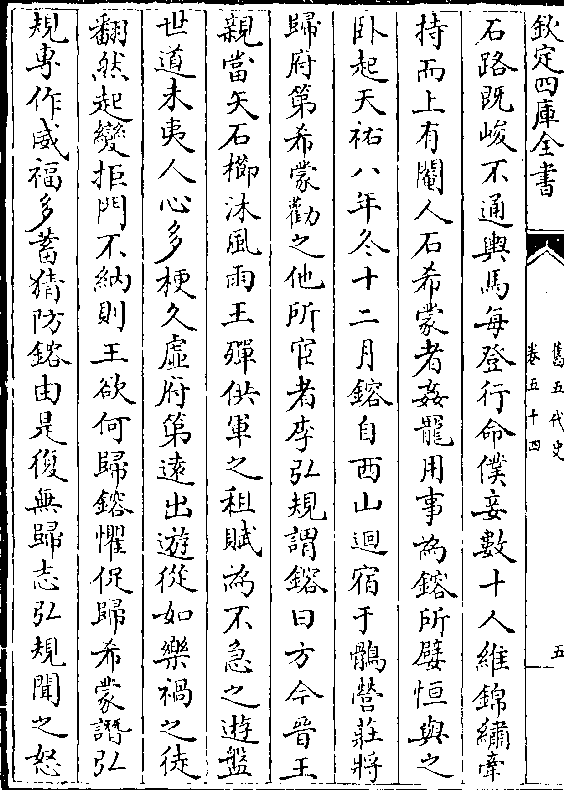 欽定四庫全書
舊五代史
卷五十四
五
石路既峻不通輿馬每登行命僕妾數十人維錦繡牽
持而上有閹人石希蒙者姦寵用事為鎔所嬖恒與之
卧起天祐八年冬十二月鎔自西山迴宿于鶻營莊將
歸府第希蒙勸之他所宦者李弘規謂鎔曰方今晉王
親當矢石櫛沐風雨王殫供軍之租賦為不急之遊盤
世道未夷人心多梗久虛府第遠出遊從如樂禍之徒
翻然起變拒門不納則王欲何歸鎔懼促歸希蒙譖弘
規專作威福多蓄猜防鎔由是復無歸志弘規聞之怒